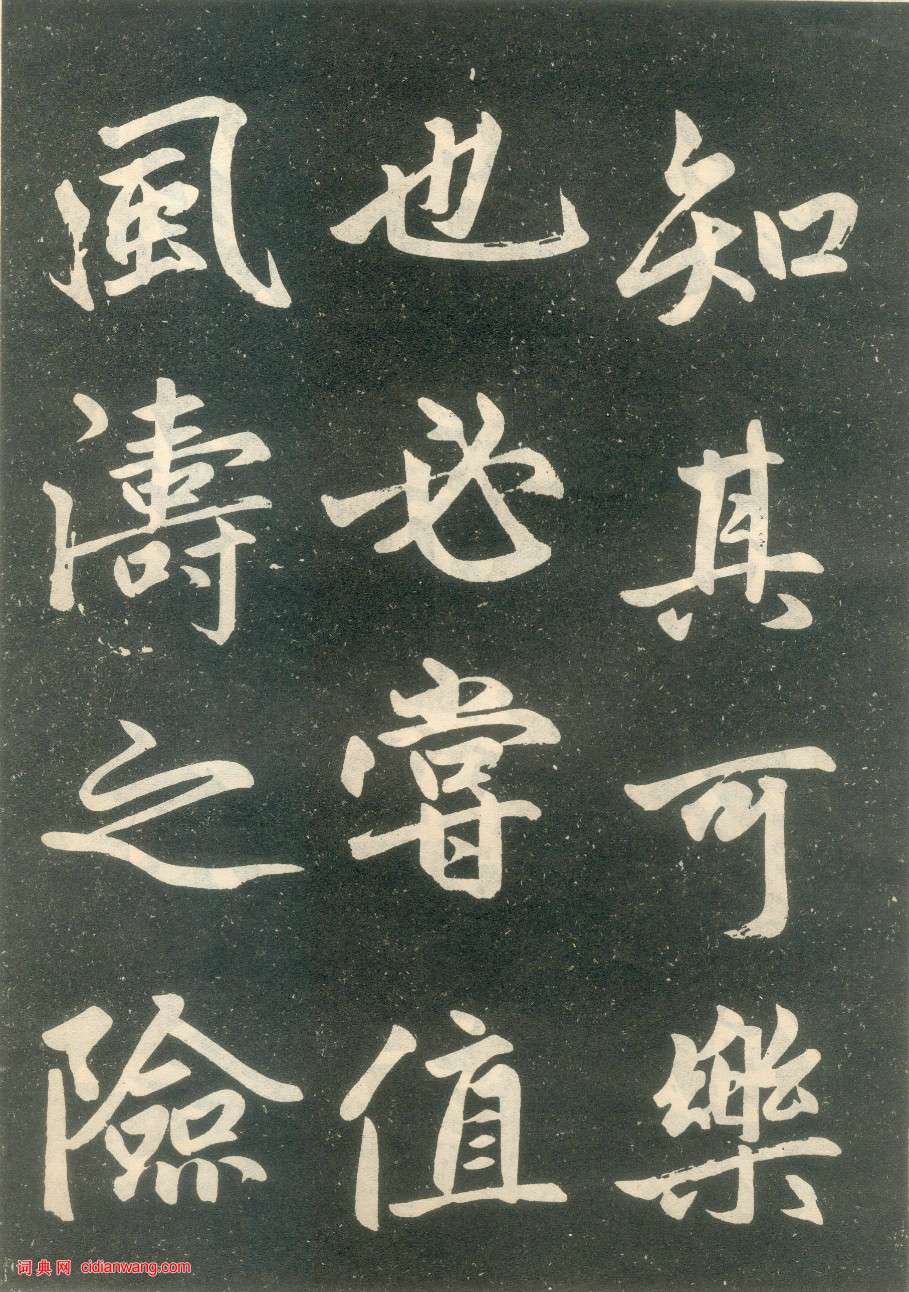 知其可樂
也必嘗值
風濤之險
词典网 cidianwang.com